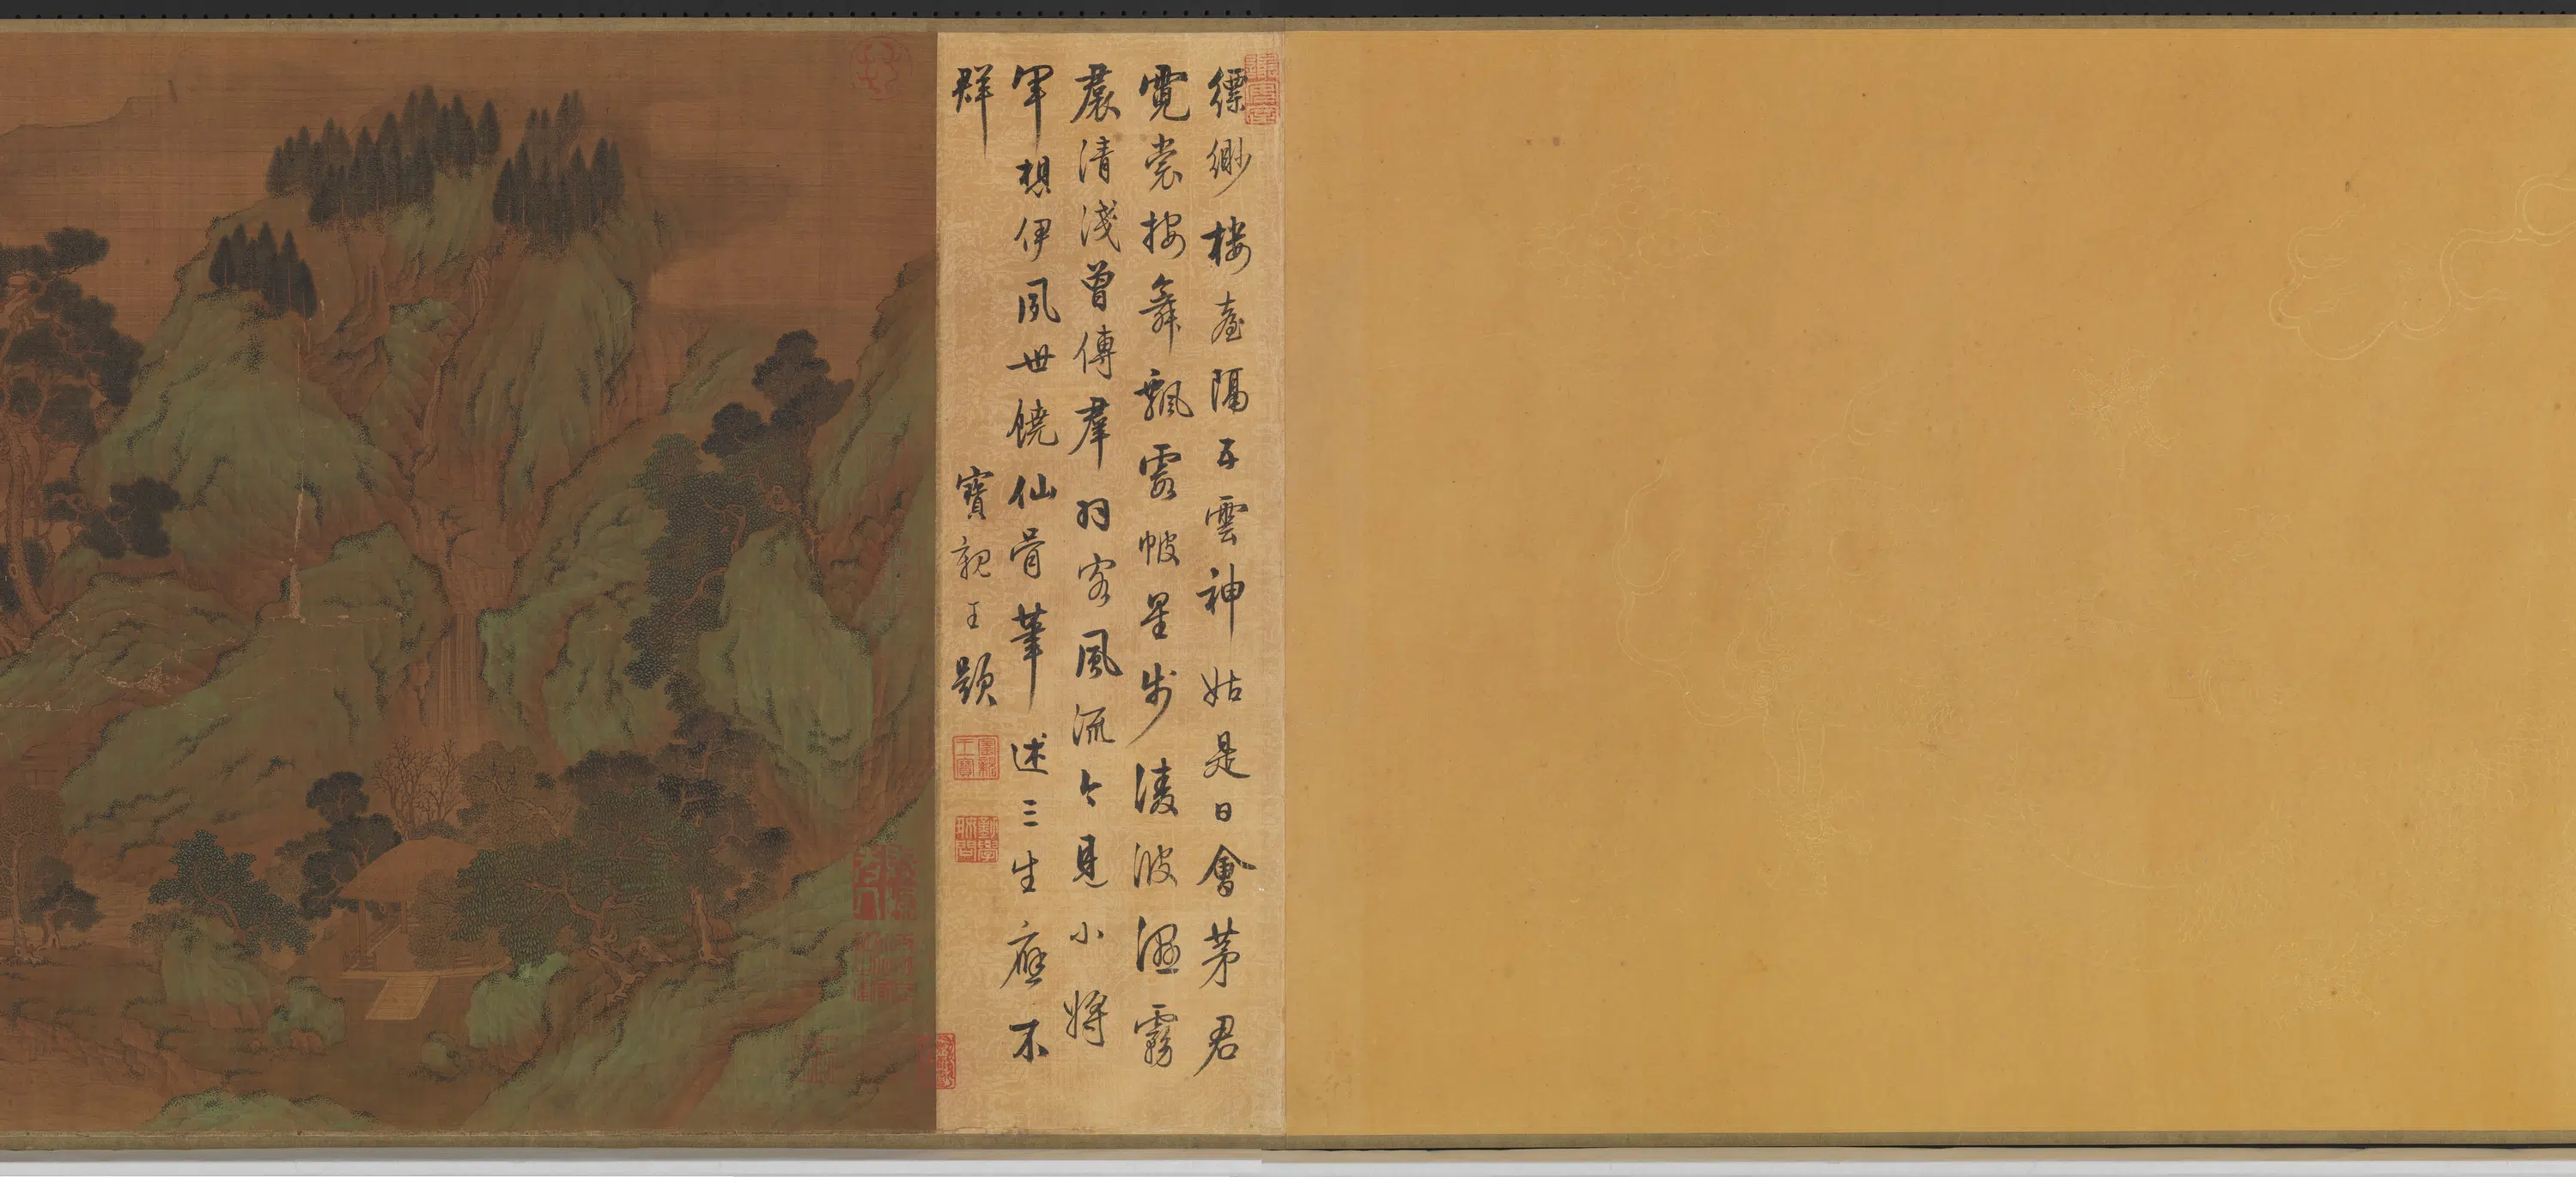 縹緲樓臺隔五雲神姑是日會茅君
霓裳按舞飄霞帔星步淩波溼霧
裠清淺曾傳羣羽客風流今見小將
軍想伊夙世饒仙骨筆述三生應不
群
寶親王題
寶親王寶